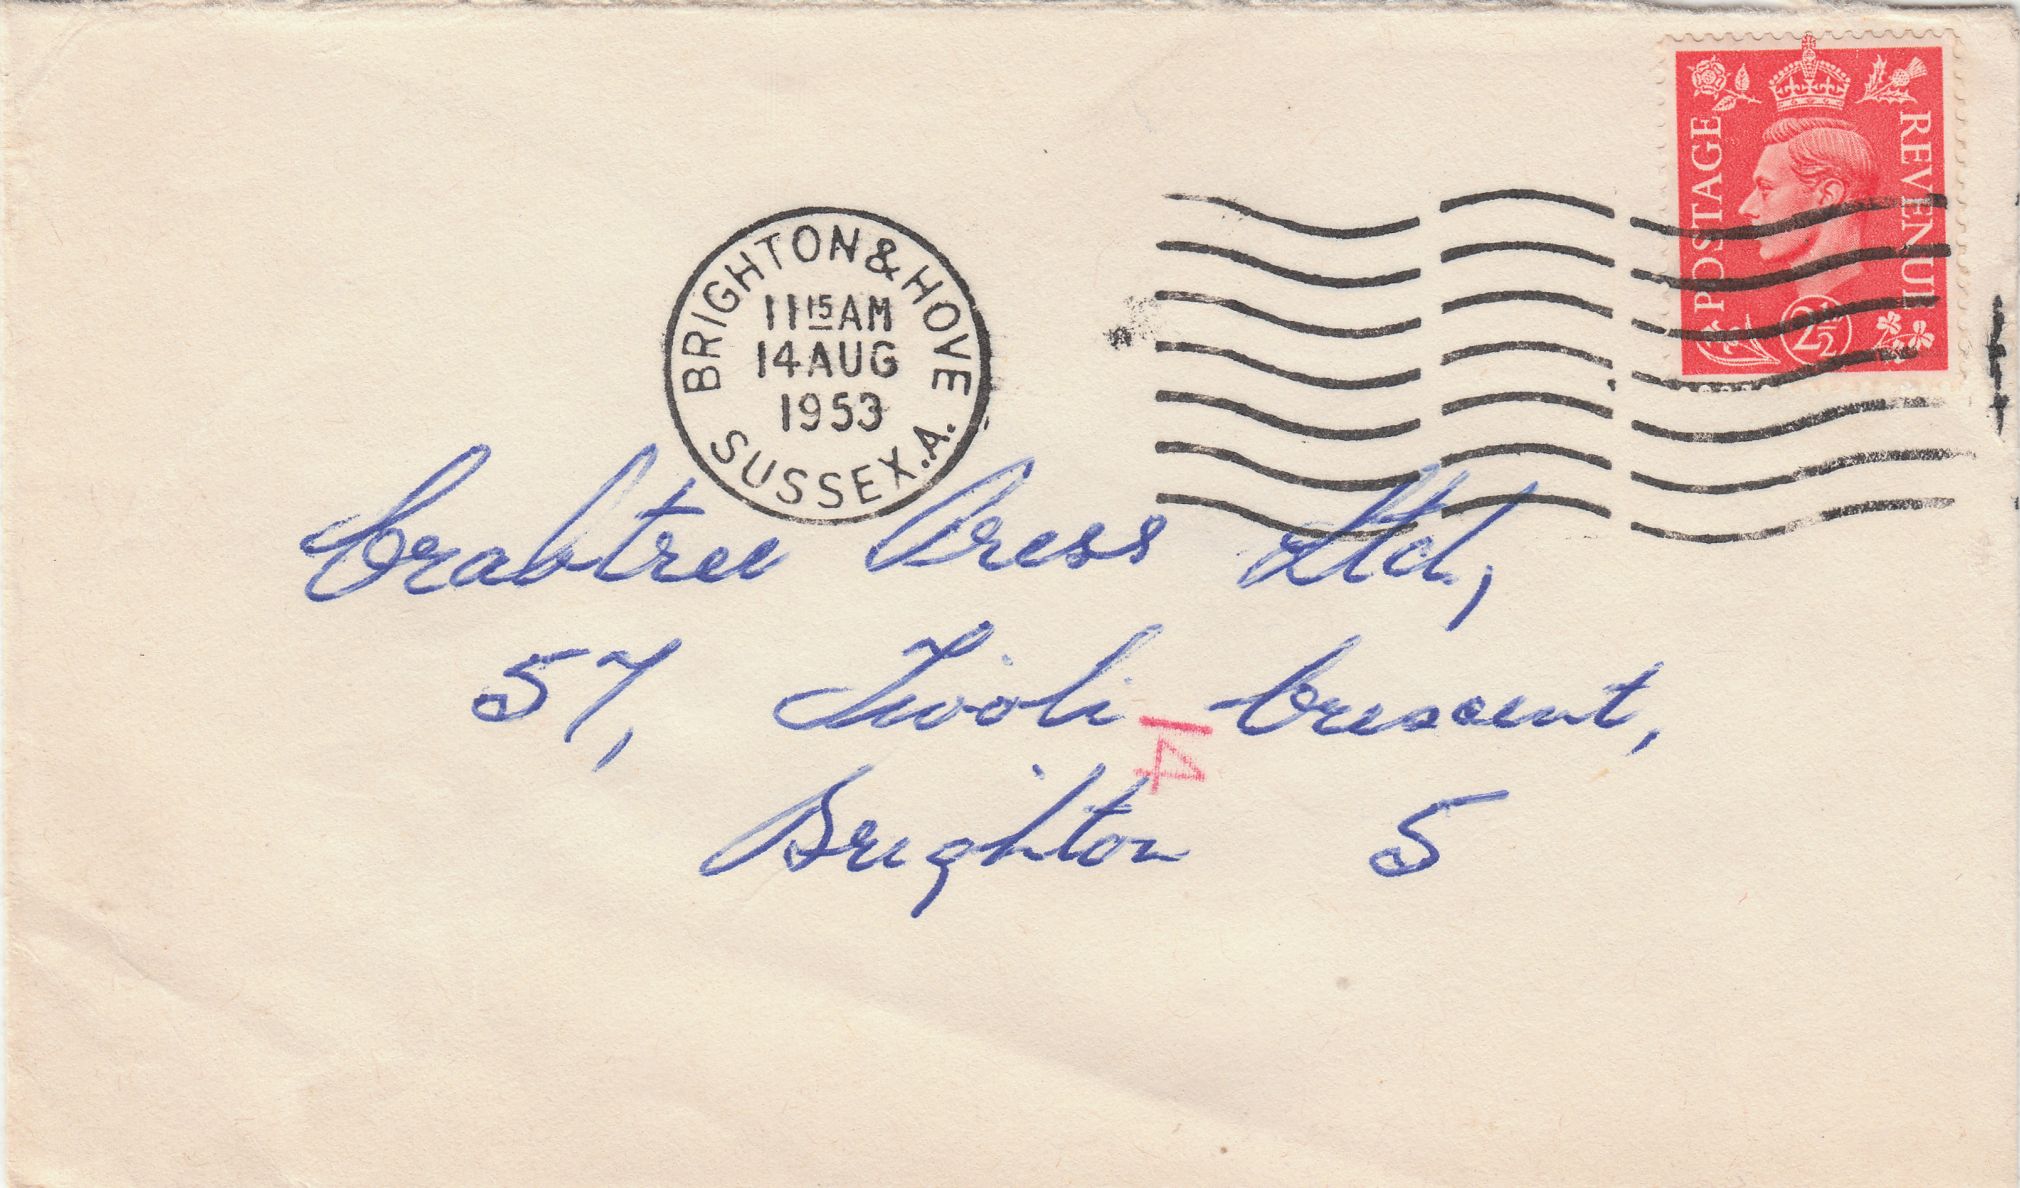 POSTAGE REVENUE
2½
BRIGHTON & HOVE
11 15 AM
14 AUG
1953
SUSSEX. A.
Crabtree Press Ltd,
57, Tivoli Crescent,
14
Brighton 5